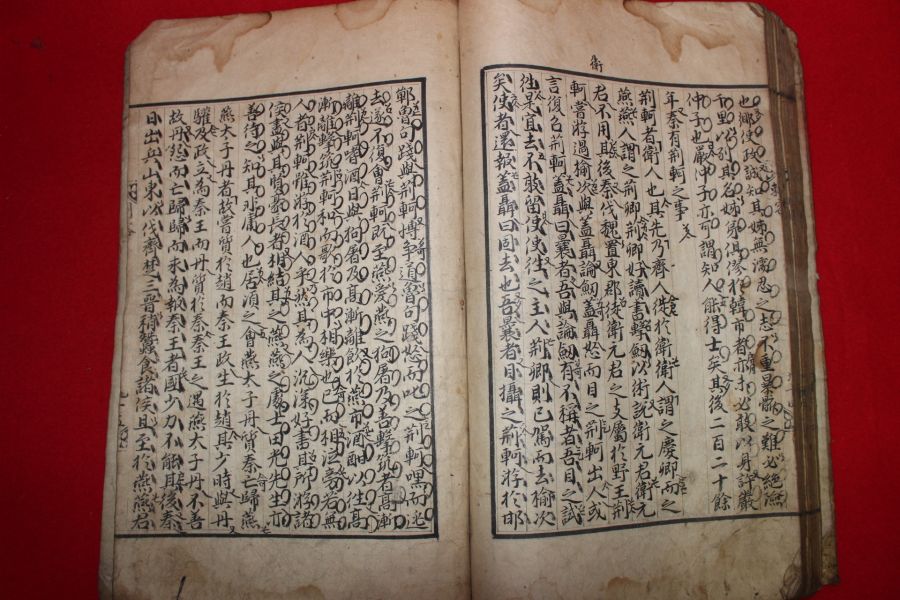 衛
也鄉使政誠知其姊無濡忍之志不重暴骸之難必絶險
千里以列其名姊弟俱僇於韓市者亦未必敢以身許嚴
仲子也嚴仲子亦可謂知人能得士矣其後二百二十餘
年秦有荊軻之事
荊軻者衛人也其先乃齊人徙於衛衛人謂之慶卿而之
燕燕人謂之荊卿荊卿好讀書擊劒以術說衛元君衛元
君不用其後秦伐魏置東郡徙衛元君之支屬於野王荊
軻嘗游過榆次與蓋聶論劒蓋聶怒而目之荊軻出人或
言復召荊軻蓋聶曰曩者吾與論劒有不稱者吾目之試
徃是宜去不敢留使使徃之主人荊卿則已駕而去榆次
矣使者還報蓋聶曰固去也吾曩者目攝之荊軻游於邯
鄲魯句踐與荊軻博爭道魯句踐怒而叱之荊軻嘿而逃
去遂不復會荊軻旣至燕愛燕之狗屠及善擊筑者高漸
離荊軻嗜酒日與狗屠及高漸離飲於燕市酒酣以徃高
漸離擊筑荊軻和而歌於市中相樂也已而相泣旁若無
人者荊軻雖游於酒人乎然其為人沈深好書其所游諸
侯盡與其賢豪長者相結其之燕燕之處士田光先生亦
善待之知其非庸人也居頃之會燕太子丹質秦亡歸燕
燕太子丹者故嘗質於趙而秦王政生於趙其少時與丹
驩及政立為秦王而丹質於秦秦王之遇燕太子丹不善
故丹怨而亡歸歸而求為報秦王者國小力不能其後秦
日出兵山東以伐齊楚三晉稍蠶食諸侯且至於燕燕君